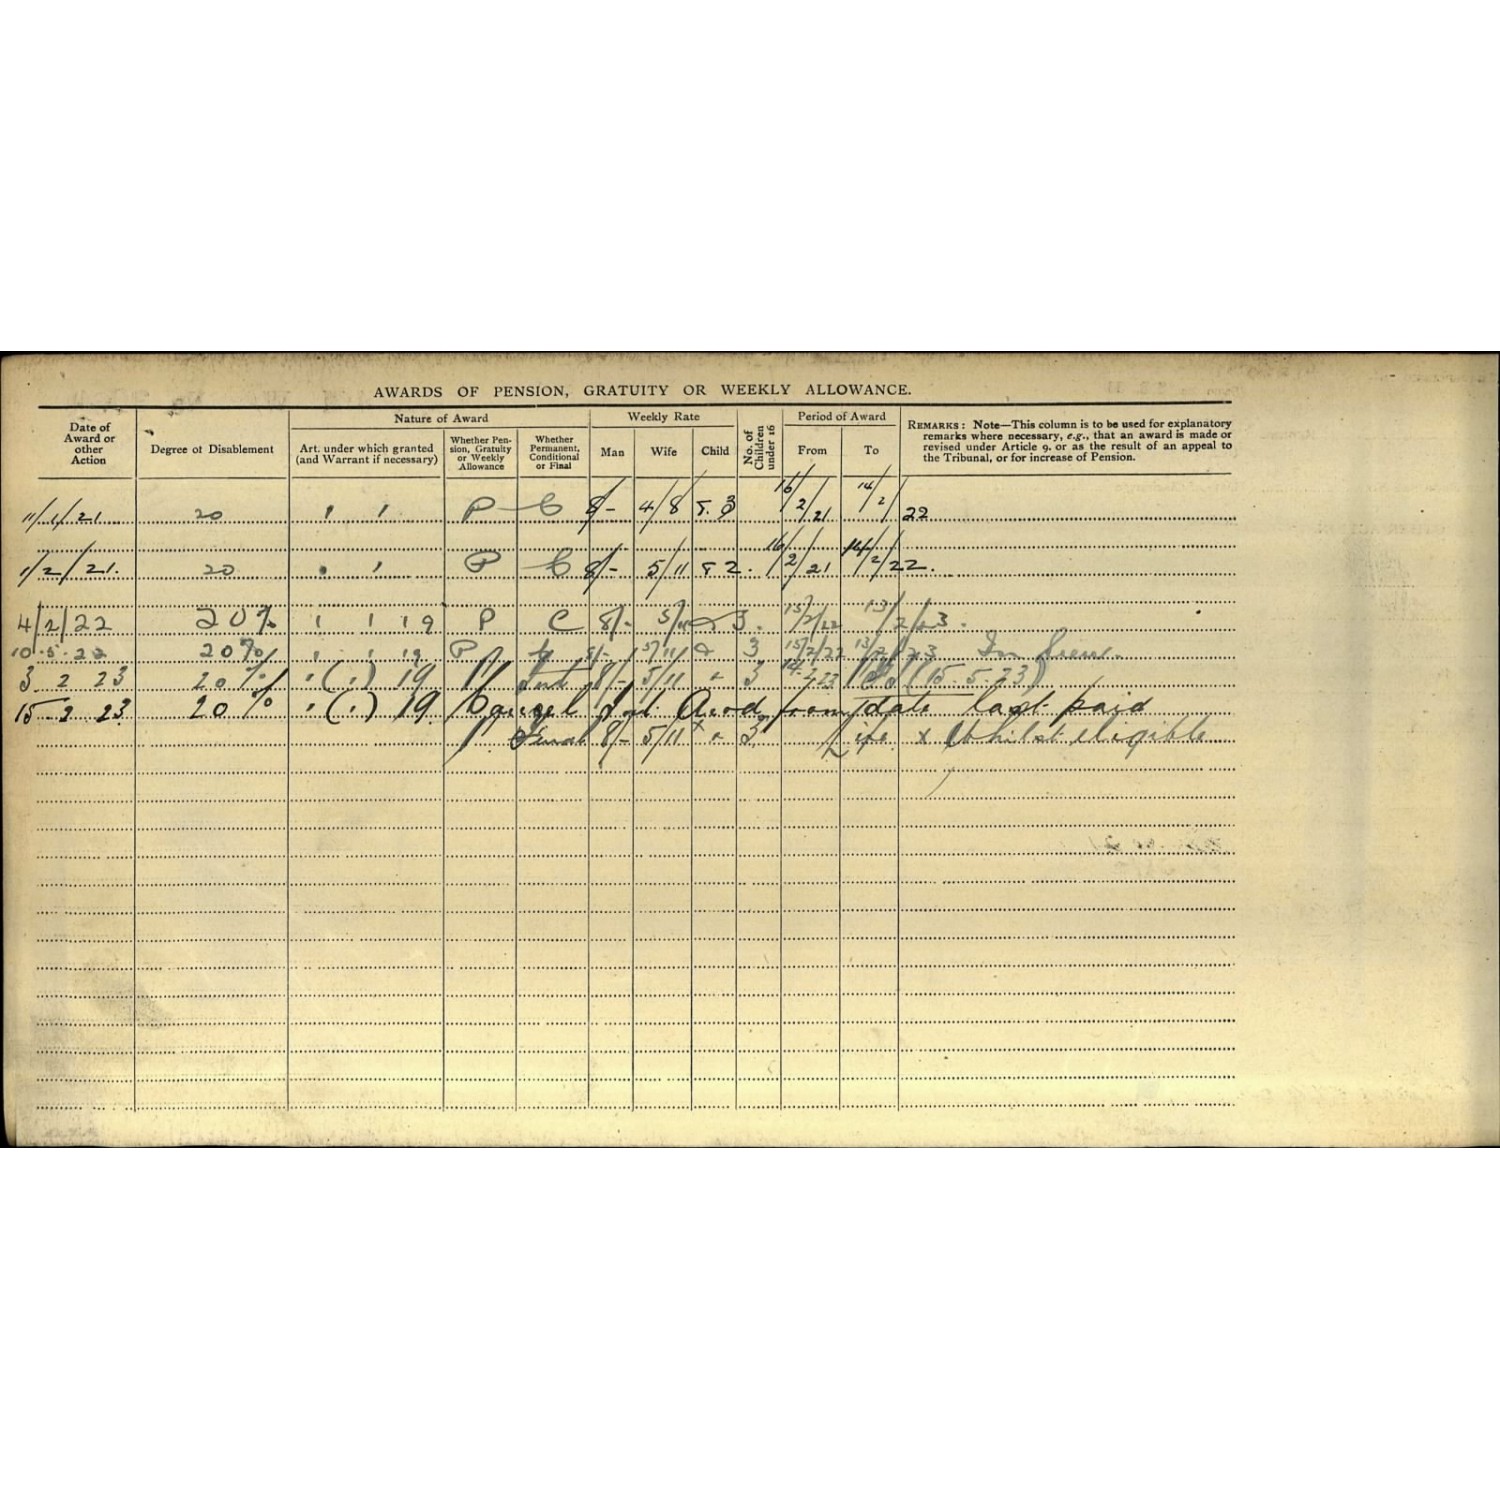 AWARDS OF PENSION, GRATUITY OR WEEKLY ALLOWANCE.
Date of Award or other Action
Degree of Disablement
Nature of Award
Art. under which granted (and Warrant if necessary)
Whether Pension, Gratuity or Weekly Allowance
Whether Permanent, Conditional or Final
Weekly Rate
Man Wife Child
No. of Children under 16
Period of Award
From To
REMARKS: Note—This column is to be used for explanatory
remarks where necessary, e.g., that an award is made or
revised under Article 9, or as the result of an appeal to
the Tribunal, or for increase of Pension.
11/1/21 20 1 1 P C 8/- 4/8 & 3 16/2/21 14/2/22
1/2/21. 20 1 1 P C 8/- 5/11 & 2. 16/2/21 14/2/22.
4/2/22 20% 1 1 19 P C 8/- 5/11 & 3. 15/2/22 13/2/23.
10.5.22 20% 1 1 19 P 8/- 5/11 & 3 15/2/22 13/2/23 In lieu.
3 2 23 20% 1 (1) 19 P 8/- 5/11 3 14.2.23 (15.5.23)
15-2 23 20% 1 (1) 19 Cancel Awd from date last paid
P Final 8/- 5/11 x 3 Life x Whilst eligible